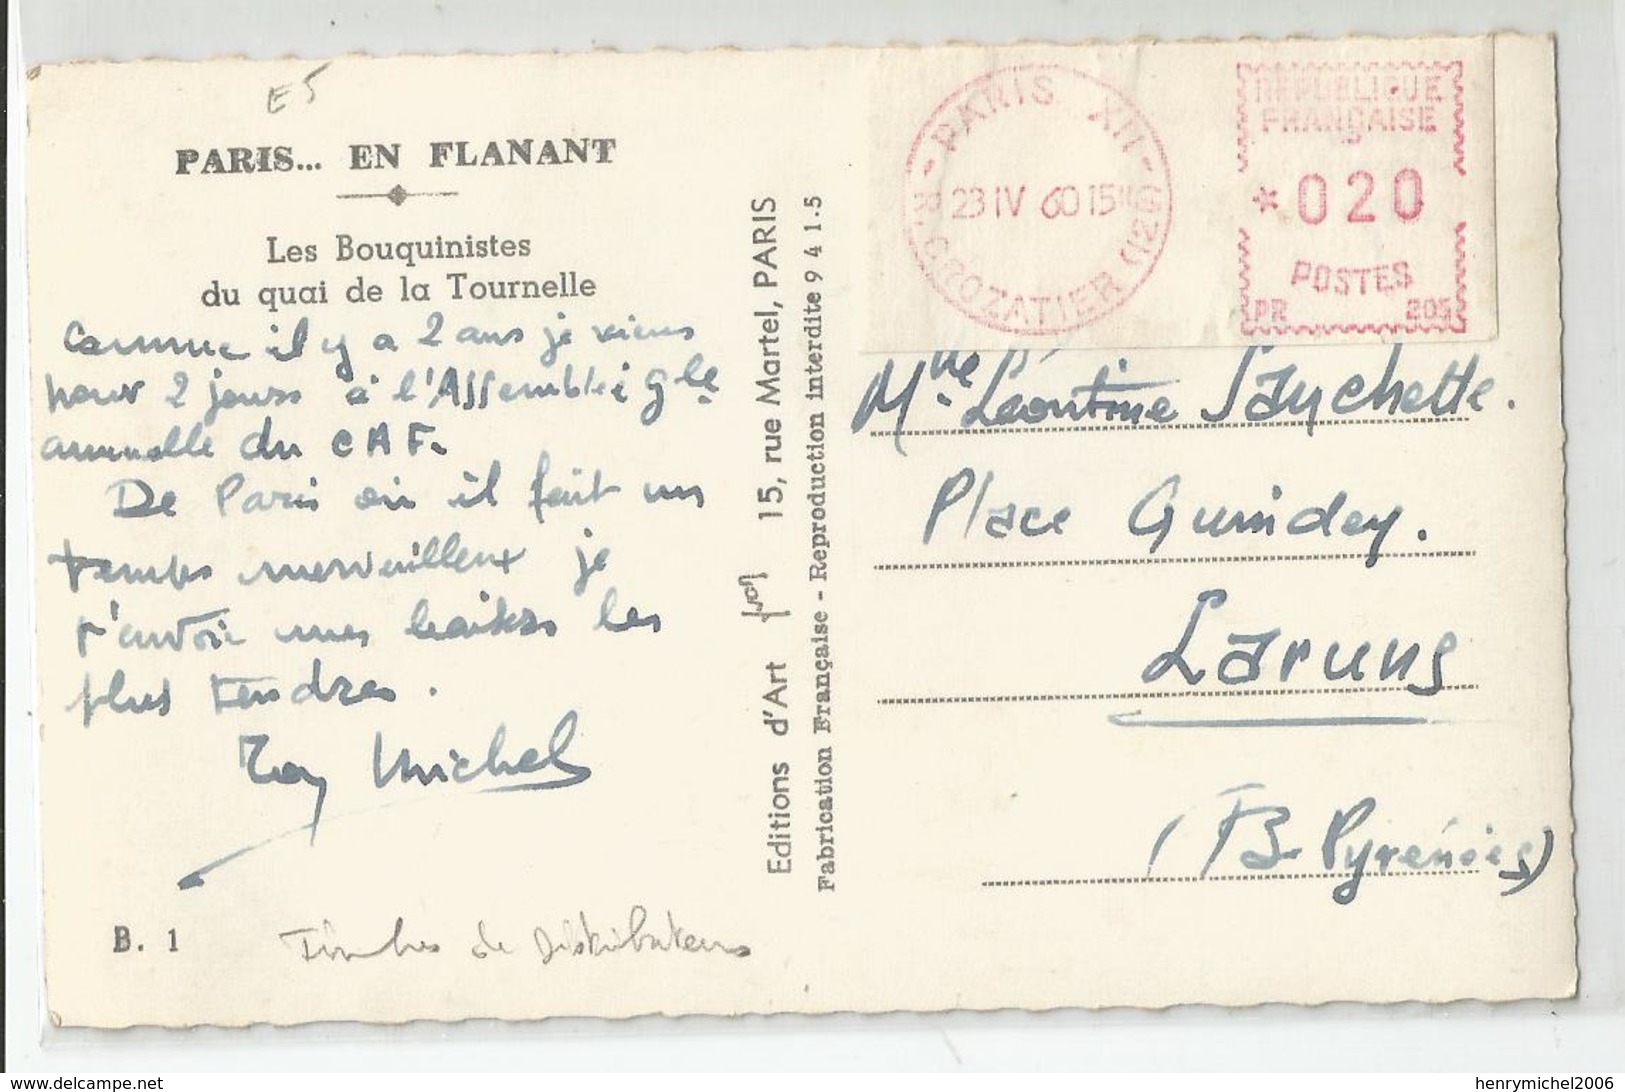 E5
PARIS... EN FLANANT
Les Bouquinistes
du quai de la Tournelle
Comme il y a 2 ans je viens
pour 2 jours à l'Assemblée gle
annuelle du CAF.
De Paris où il fait un
temps merveilleux je
t'envoie mes baisers les
plus tendres.
Michel
B. 1
Timbres de distributeurs
Editions d'Art yvon 15, rue Martel, PARIS
Fabrication Française - Reproduction interdite 9 4 1.5
PARIS XII
23 IV 60 15H
R. CROZATIER (12e)
REPUBLIQUE
FRANÇAISE
*020
POSTES
PR 205
Mme Léontine Sanchette.
Place Guindey.
Laruns
(B-Pyrénées)
delcampe.net
henrymichel2006